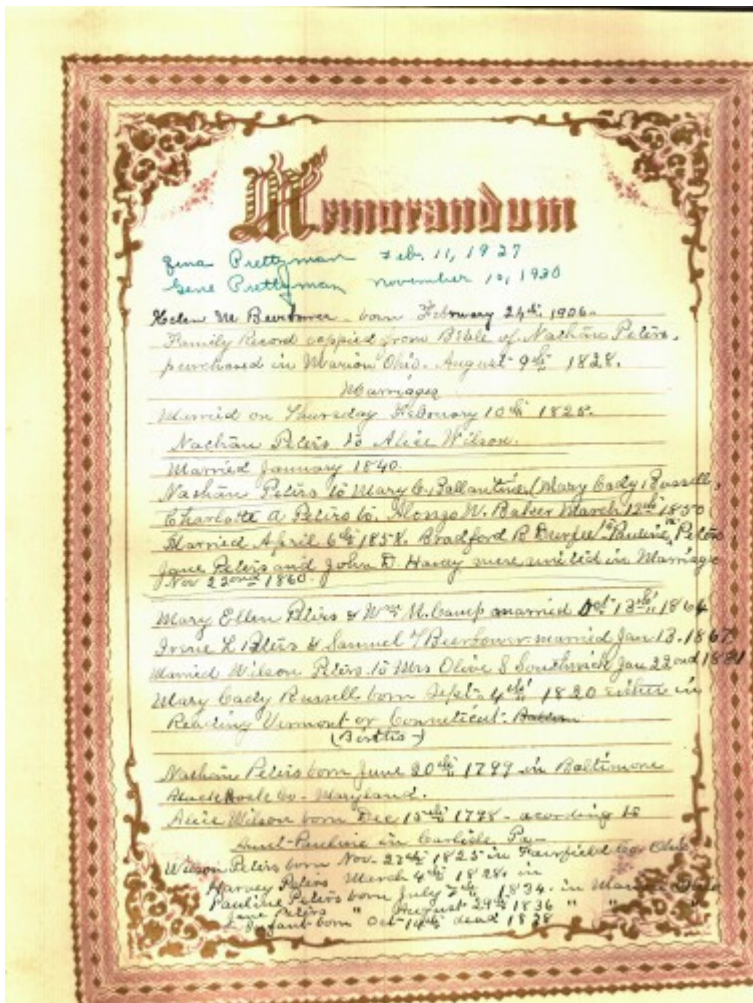 Memorandum
Zena Prettyman Feb. 11, 1927
Gene Prettyman november 10, 1930
Helen M Beerbower born February 24th 1906
Family Record coppied from Bible of Nathan Peters,
purchased in Marion Ohio. August 9th 1828.
Marriages
Married on Thursday February 10th 1825.
Nathan Peters to Alice Wilson.
Married January 1840.
Nathan Peters to Mary C. Ballantine (Mary Cady Russell)
Charlotte A Peters to Alonzo W. Baker March 12th 1850
Married April 6th 1858. Bradford R Durfee to Pauline Peters
Jane Peters and John D. Harey were united in Marriage
Nov 22ond 1860.
Mary Ellen Peters & Wm M. Camp married Oct 13th 1864
Irene L Peters & Samuel T Beerbower married Jan. 13. 1867
Married Wilson Peters to Mrs Olive S Southwick Jan 22ond 1881
Mary Cady Russell born Sept 4th 1820 either in
Reading Vermont or Conneticut.
(Births)
Nathan Peters born June 20th 1799 in Baltimore
Co. Maryland.
Alice Wilson born Dec 15th 1798 acording to
Aunt Pauline in Carlisle Pa
Wilson Peters born Nov. 27th 1825 in Fairfield Co. Ohio
Harvey Peters March 4th 1828. in
Pauline Peters born July 7th 1834. in Marion Ohio
Jane Peters " August 29th 1836 " "
Infant born Oct 14th dead 1838